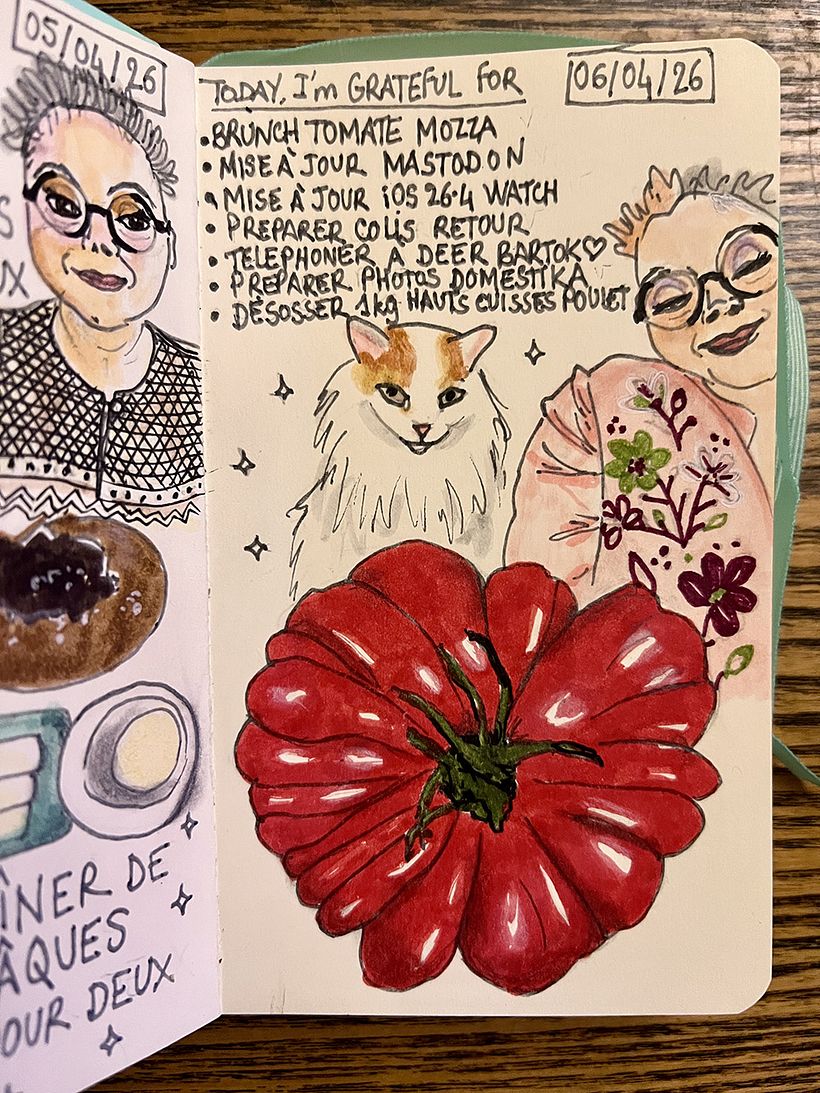 05/04/26
S
UX
ÎNER DE
ÂQUES
OUR DEUX
TODAY, I'm GRATEFUL FOR
06/04/26
• BRUNCH TOMATE MOZZA
• MISE À JOUR MASTODON
• MISE À JOUR iOS 26.4 WATCH
• PREPARER COLIS RETOUR
• TELEPHONER A DEER BARTOK♡
• PREPARER PHOTOS DOMESTIKA
• DÉSOSSER 1kg HAUTS CUISSES POULET